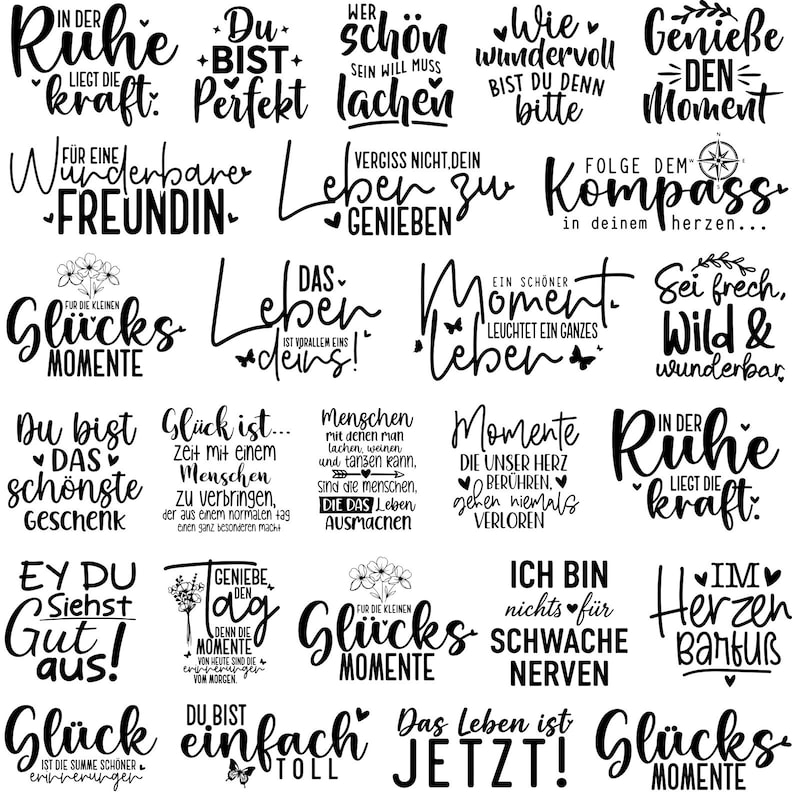 IN DER
Ruhe
LIEGT DIE
kraft.
Du
BIST
Perfekt
WER
schön
SEIN WILL MUSS
lachen
Wie
wundervoll
BIST DU DENN
bitte
Genieße
DEN
Moment
FÜR EINE
Wunderbare
FREUNDIN
VERGISS NICHT, DEIN
Leben zu
GENIEßEN
FOLGE DEM
Kompass
in deinem herzen...
FÜR DIE KLEINEN
Glücks
MOMENTE
DAS
Leben
IST VORALLEM EINS
deins!
EIN SCHÖNER
Moment
LEUCHTET EIN GANZES
Leben
Sei frech,
Wild &
wunderbar.
Du bist
DAS
schönste
GESCHENK
Glück ist...
Zeit mit einem
Menschen
zu verbringen,
der aus einem normalen tag
einen ganz besonderen macht
Menschen
mit denen man
lachen, weinen
und tanzen kann,
sind die menschen,
DIE DAS Leben
AUSMACHEN
Momente
DIE UNSER HERZ
BERÜHREN,
gehen niemals
VERLOREN
IN DER
Ruhe
LIEGT DIE
kraft.
EY DU
Siehst
Gut
aus!
GENIEßE
DEN
Tag
DENN DIE
MOMENTE
VON HEUTE SIND DIE
erinnerungen
VOM MORGEN.
FÜR DIE KLEINEN
Glücks
MOMENTE
ICH BIN
nichts für
SCHWACHE
NERVEN
IM
Herzen
Barfuß
Glück
IST DIE SUMME SCHÖNER
erinnerungen
DU BIST
einfach
TOLL
Das Leben ist
JETZT!
Glücks
MOMENTE